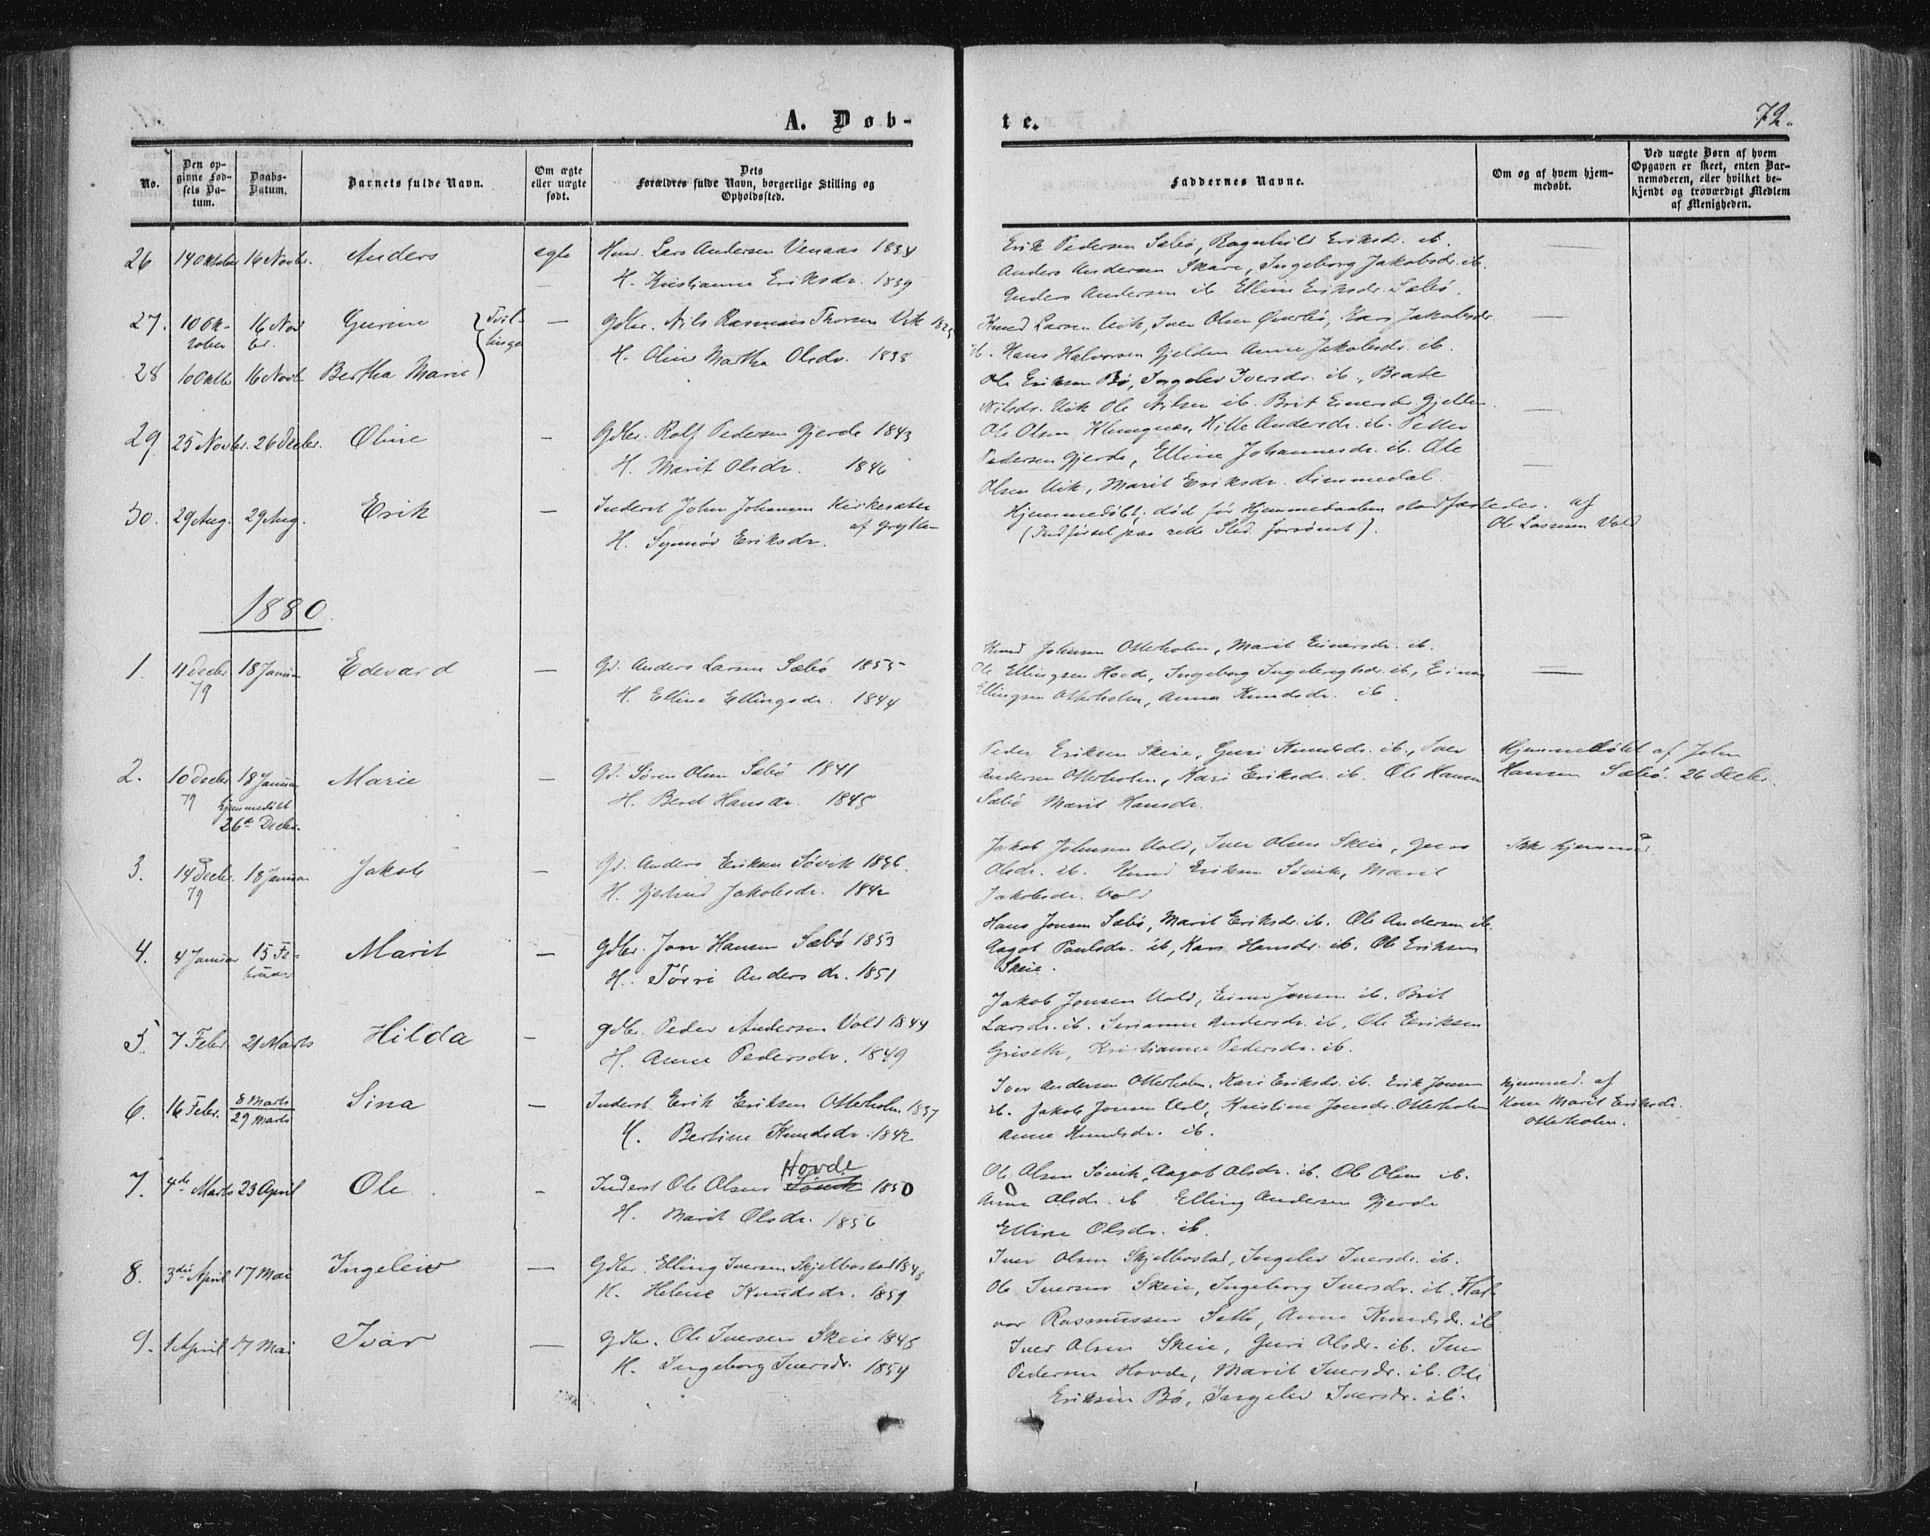 A. Døb-
te.
72.
No.
Den op-
givne Fød-
sels Da-
tum.
Daabs-
Datum.
Barnets fulde Navn.
Om ægte
eller uægte
født.
Dets
Forældres fulde Navn, borgerlige Stilling og
Opholdssted.
Faddernes Navne.
Om og af hvem hjem-
medøbt.
Ved uægte Børn af hvem
Opgaven er skeet, enten Bar-
nemoderen, eller hvilket be-
kjendt og troværdigt Medlem
af Menigheden.
26 14 Oktober 16 Novbr. Anders egte Lars Andersen Venaas 1834
H. Kristianne Eriksdr. 1839
Erik Pedersen Sæbø, Ragnhild Eriksdr. ib.
Anders Andersen Skare, Ingeborg Jakobsdr. ib.
Anders Andersen ib Elline Eriksdr. Sæbø.
27. 10 Ok- 16 Nov Gurine Tvil- — Gdbr. Nils Rasmus Thorsen Vik
tober br. linger H. Oline Martha Olsdr. 1838
Knud Larsen Vik, Iver Olsen Øverbø, Kari Jakobsdr
ib. Hans Halvorsen Gjelden Anne Jakobsdr. ib.
28 10 Oktbr 16 Novb. Bertha Marie
Ole Eriksen Bø, Ingelev Iversdr. ib., Beate
Nilsdr. Vik Ole Nilsen ib. Brit Einersdr
29 25 Novbr. 26 Decbr. Oline — Gdbr. Rolf Pedersen Gjerde 1843
H. Marit Olsdr. 1846
Ole Olsen Andersdr. ib. Petter
Pedersen Gjerde, Elline Johannesdr. ib. Ole
Olsen Vik, Marit Eriksdr.
30. 29 Aug. 29 Aug. Erik — Inderst John Johansen
H. Synnøv Eriksdr.
Hjemmedøbt, død før Hjemmedaaben stadfæstedes. af
(Indførsel paa rette Sted forsømt). Ole Larsen Vold
1880
1. 11 Decbr 18 Januar Edevard — Gd. Anders Larsen Sæbø 1855
79 H. Elline Ellingsdr. 1844
Knud Johnsen Otterholm, Marit Einersdr. ib.
Ole Ellingsen Hovde, Ingeborg Ingebregtsdr. ib., Einar
Ellingsen Otterholm, Anna Knudsdr. ib.
2. 10 Decbr 18 Januar Marie — Gd. Søren Olsen Sæbø 1841
79 hjemmedøbt H. Beret Hansdr. 1845
26de Decbr.
Peder Eriksen Skeie, Guri Knudsdr. ib., Iver
Andersen Otterholm, Kari Eriksdr. ib. Ole Hansen
Sæbø Marit Hansdr.
Hjemmedøbt af John
Hansen Sæbø. 26 Decbr.
3. 14 Decbr. 18 Januar Jakob — Gd. Anders Eriksen Søvik 1836
79 H. Gjertrud Jakobsdr. 1842
Jakob Johnsen Vold, Iver Olsen Skeie, Guri
Olsdr. ib. Knud Eriksen Søvik, Marit
Jakobsdr. Vold
Ikke hjemmed
4. 4 Januar 15 Fe- Marit — Gdbr. Jon Hansen Sæbø 1853
bruar H. Tørri Andersdr. 1851
Hans Jonsen Sæbø, Marit Eriksdr. ib. Ole Andersen ib
Aagot Paulsdr. ib, Kari Hansdr. ib. Ole Eriksen
Skeie.
5. 7 Febr 21 Marts Hilda — Gdbr. Peder Andersen Vold 1844
H. Anne Pedersdr. 1849
Jakob Jonsen Vold, Einer Jonsen ib. Brit
Larsdr. ib. Serianne Andersdr. ib. Ole Eriksen
Griseth, Kristianne Pedersdr. ib.
6. 16 Febr. 8 Marts Sina — Inderst Erik Eriksen Otterholm 1837
29 Marts H. Bertine Knudsdr. 1842
Iver Andersen Otterholm, Kari Eriksdr. ib. Erik Jonsen
ib. Jakob Jonsen Vold, Kristine Jonsdr. Otterholm
Anne Knudsdr. ib.
hjemmed. af
Kone Marit Eriksdr.
Otterholm.
7. 4de Marts 23 April Ole — Inderst Ole Olsen Hovde Søvik 1850
H. Marit Olsdr. 1856
Ole Olsen Søvik, Aagot Olsdr. ib. Ole Olsen ib.
Anne Olsdr. ib. Elling Andersen Gjerde
Elline Olsdr. ib.
8. 3die April 17 Mai Ingeleiv — Gdbr. Elling Iversen Skjelbostad
H. Helene Knudsdr. 1859
Iver Olsen Skjelbostad, Ingelev Iversdr. ib.
Ole Iversen Skeie, Ingeborg Iversdr. ib. Hal-
vor Rasmussen Anne Knudsdr. ib
9. 1 April 17 Mai Ivar — Gdbr. Ole Iversen Skeie 1848
H. Ingeborg Iversdr. 1854
Iver Olsen Skeie, Guri Olsdr. ib. Iver
Pedersen Hovde, Marit Iversdr. ib. Ole
Eriksen Bø, Ingelev Iversdr. ib.